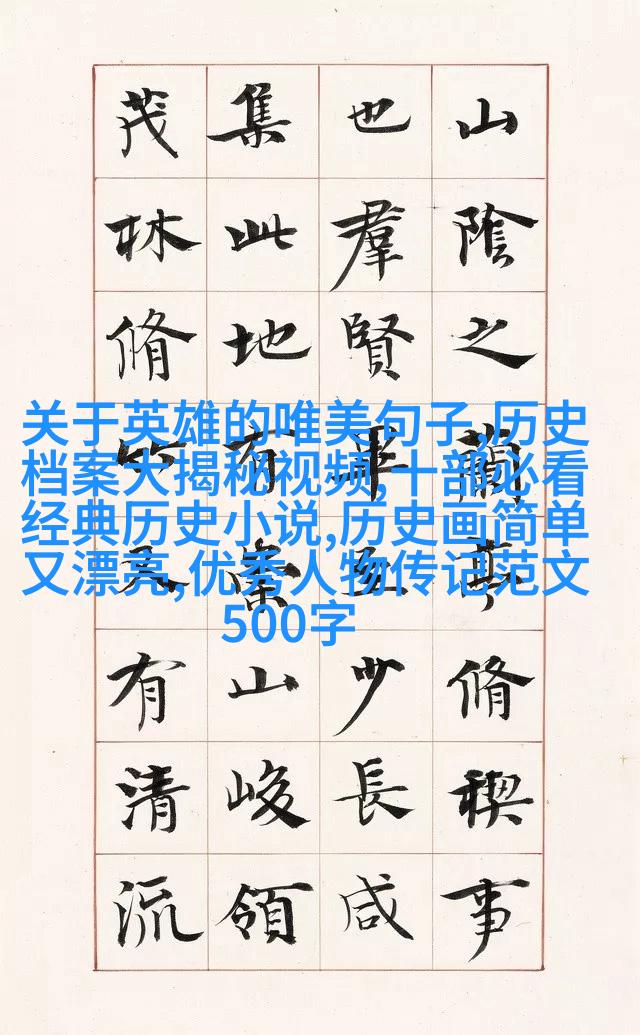 山陰之蘭亭脩禊事
也羣賢畢至少長咸
集此地有崇山峻領
茂林脩竹又有清流
关于英雄的唯美句子,历史
档案大揭秘视频,十部必看
经典历史小说,历史画简单
又漂亮,优秀人物传记范文
500字